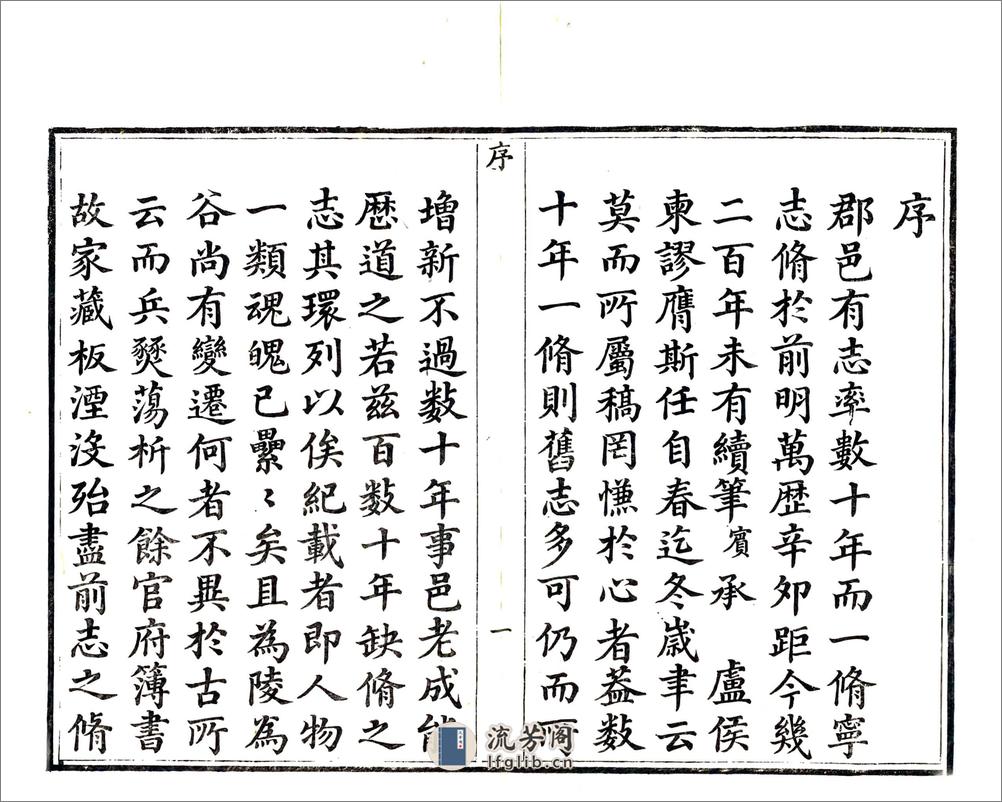 序
郡邑有志率數十年而一脩寧
志脩於前明萬歴辛卯距今幾
二百年未有續筆賓承　盧侯
柬謬膺斯任自春迄冬嵗聿云
莫而所屬稿罔慊於心者葢数
十年一脩則舊志多可仍而所
序
一
增新不過数十年事邑老成能
歴道之若兹百数十年缺脩之
志其環列以俟紀載者即人物
一類魂魄已纍〻矣且為陵為
谷尚有變遷何者不異於古所
云而兵燹蕩析之餘官府簿書
故家藏板湮沒殆盡前志之脩
流芳阁
lfglib.cn